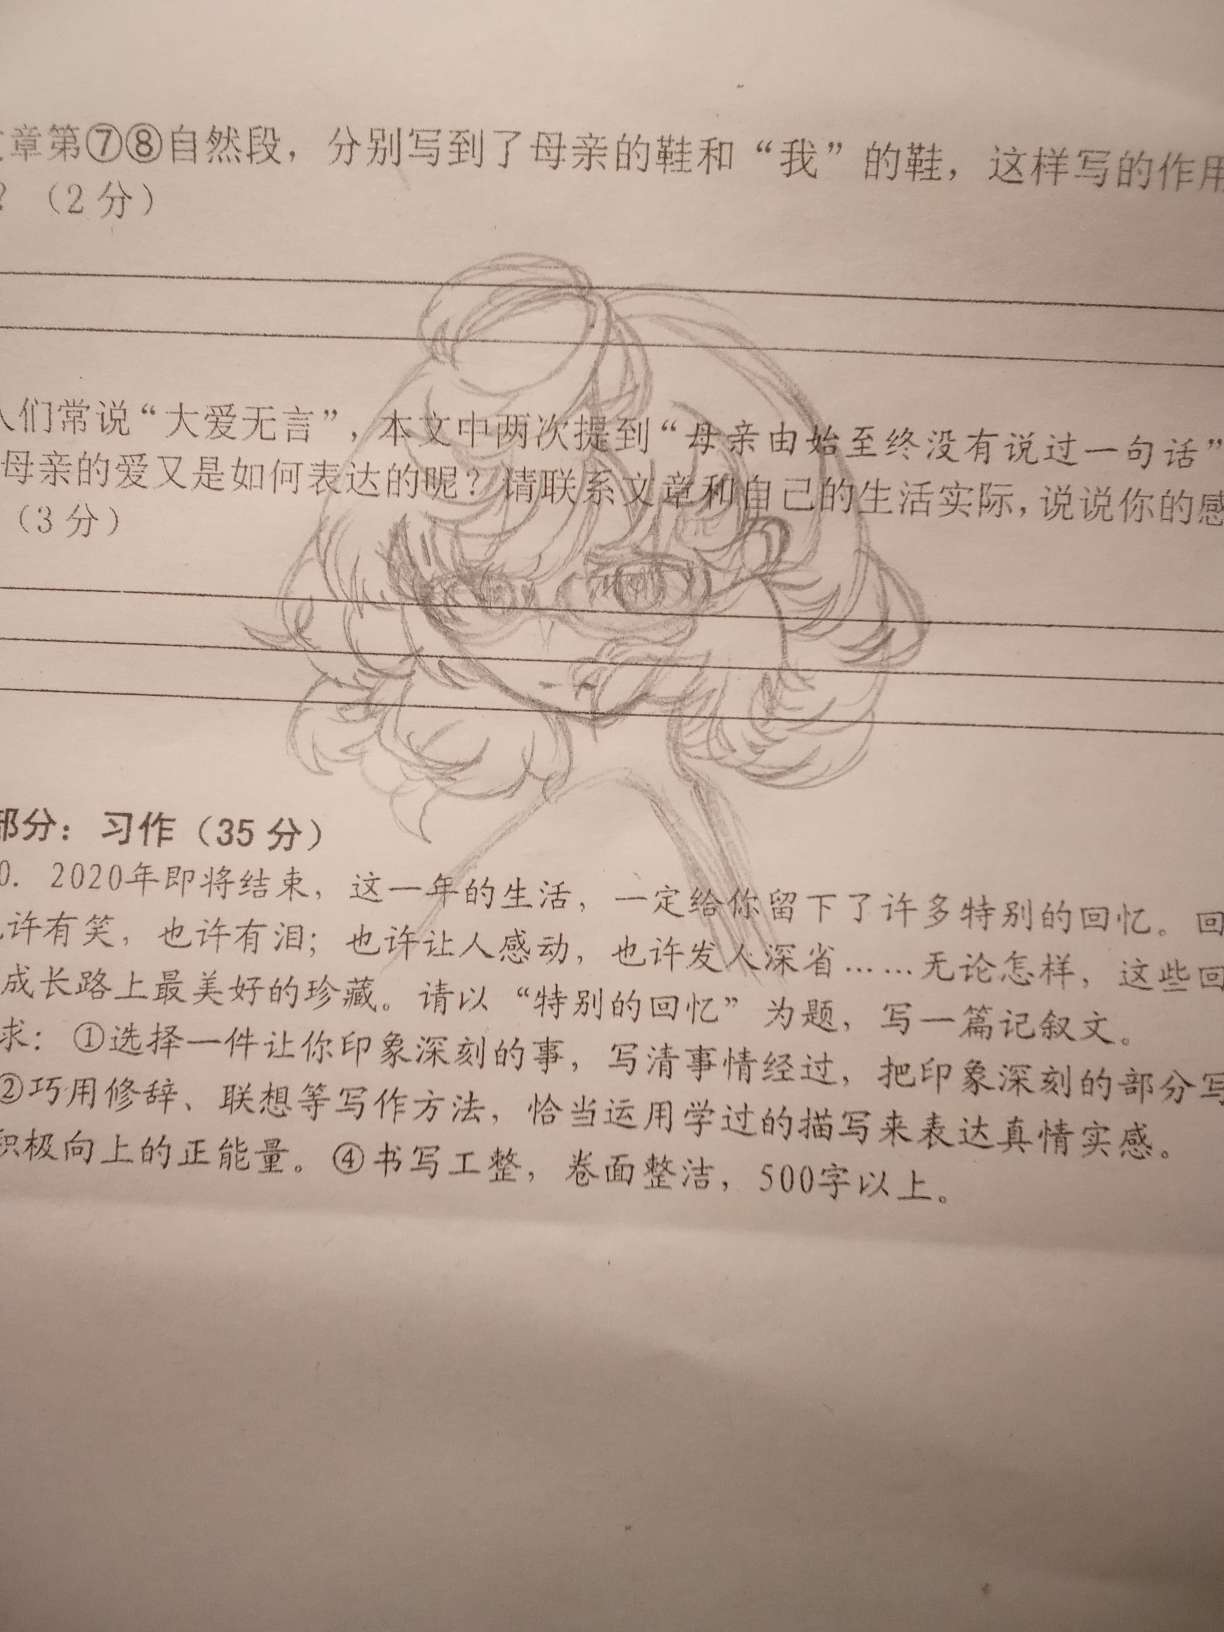 章第⑦⑧自然段，分别写到了母亲的鞋和“我”的鞋，这样写的作用
？（2分）
人们常说“大爱无言”，本文中两次提到“母亲由始至终没有说过一句话”
母亲的爱又是如何表达的呢？请联系文章和自己的生活实际，说说你的感
（3分）
部分：习作（35分）
0. 2020年即将结束，这一年的生活，一定给你留下了许多特别的回忆。回
许有笑，也许有泪；也许让人感动，也许发人深省……无论怎样，这些回
成长路上最美好的珍藏。请以“特别的回忆”为题，写一篇记叙文。
求：①选择一件让你印象深刻的事，写清事情经过，把印象深刻的部分写
②巧用修辞、联想等写作方法，恰当运用学过的描写来表达真情实感。
积极向上的正能量。④书写工整，卷面整洁，500字以上。